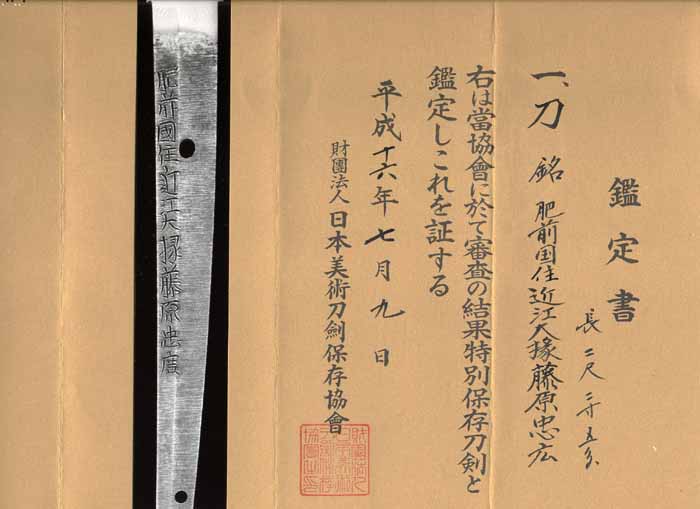 鑑定書
一、刀 銘 肥前国住近江大掾藤原忠広
長 二尺二寸五分
右は當協會に於て審査の結果特別保存刀剣と
鑑定しこれを証する
平成十六年七月九日
財團法人日本美術刀劍保存協會
肥前國住近江大掾藤原忠廣